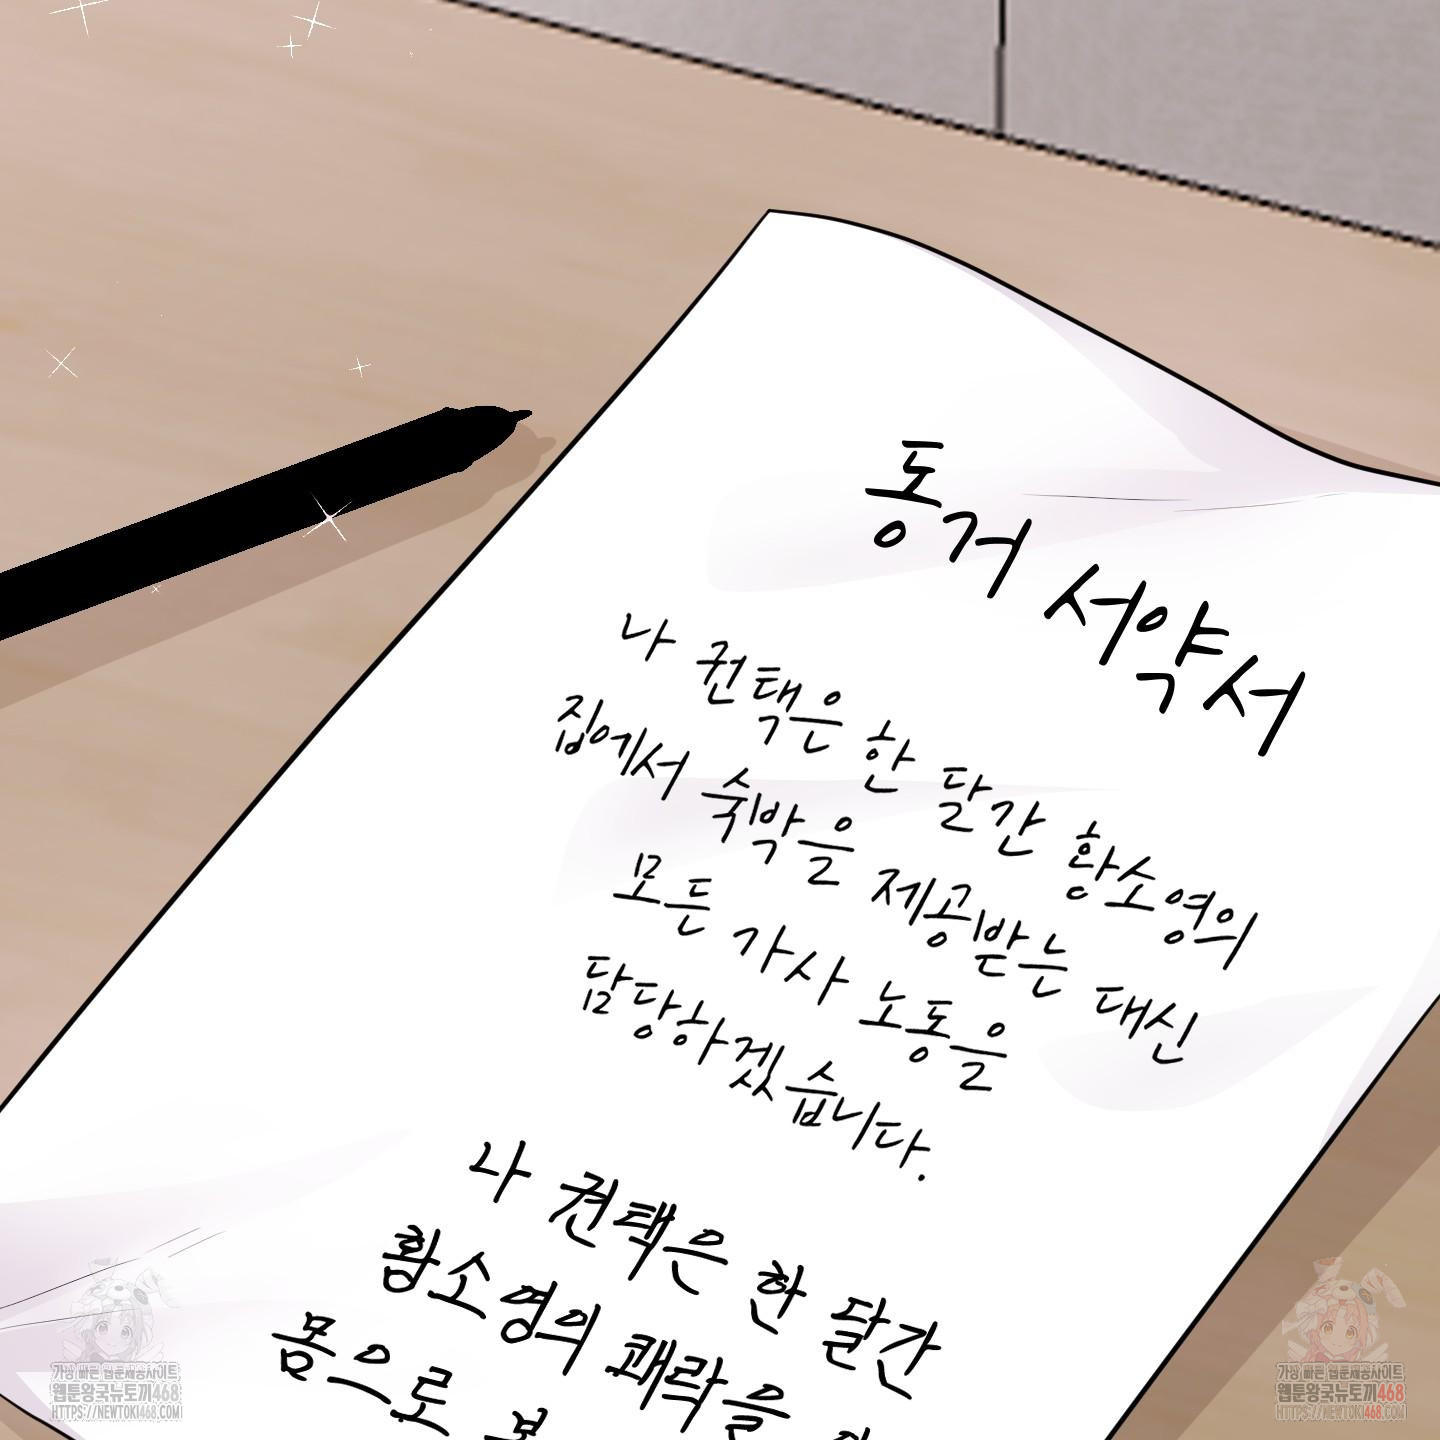 동거 서약서
나 권택은 한 달간 황소영의
집에서 숙박을 제공받는 대신
모든 가사 노동을
담당하겠습니다.
나 권택은 한 달간
황소영의 쾌락을
몸으로
가장 빠른 웹툰제공사이트
웹툰왕국뉴토끼468
HTTPS://NEWTOKI468.COM
가장 빠른 웹툰제공사이트
웹툰왕국뉴토끼468
HTTPS://NEWTOKI468.COM